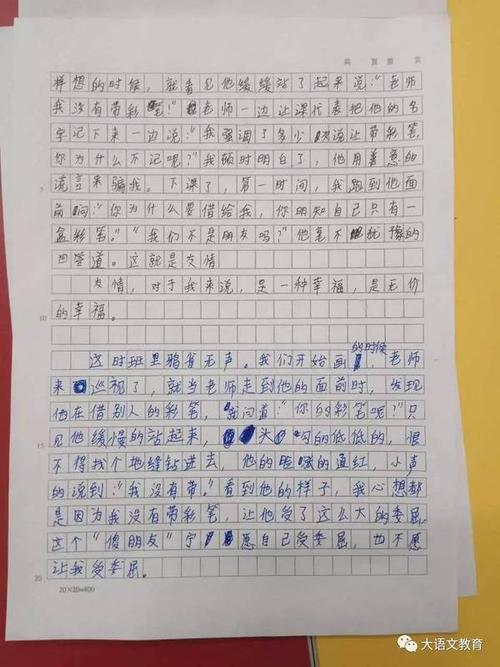 共 页 第 页
样想的时候，就看见他缓缓站了起来说：“老师
我没有带彩笔！”老师一边让课代表把他的名
字记下来一边说：“我强调了多少次说让带彩笔，
你为什么不记呢？”我顿时明白了，他用善意的
谎言来骗我。下课了，第一时间，我跑到他面
前问：“你为什么要借给我，你明知自己只有一
盒彩笔。”“我们不是朋友吗？”他毫不犹豫的
回答道。这就是友情
友情，对于我来说，是一种幸福，是无价
的幸福。
这时班里鸦雀无声。我们开始画的时候，老师
来巡视了，就当老师走到他的面前时，发现
他在借别人的彩笔，就问道：“你的彩笔呢？”只
见他缓慢的站起来，头勾的低低的，恨
不得找个地缝钻进去，他的脸的通红，小声
的说到：“我没有带。”看到他的样子，我心想都
是因为我没有带彩笔，让他受了这么大的委屈，
这个“傻朋友”宁愿自己受委屈，也不愿
让我受委屈。
5
10
15
20
20×20=400
大语文教育